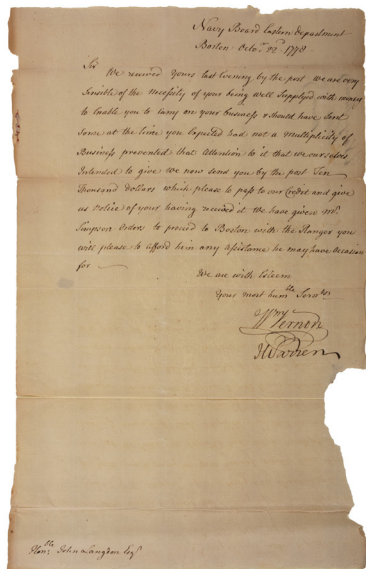 Navy Board Eastern Department
Boston Octor. 22d. 1778
Sir
We received Yours last Evening by the post we are very
Sensible of the necessity of your being well Supplyed with money
to Enable you to carry on your business & should have sent
some at the time you Expected had not a multiplicity of
Business prevented that Attention to it that we ourselves
Intended to give we now send you by the post Ten
Thousand dollars which please to pass to our Credit and give
us Notice of your having receiv'd it We have given Mr.
Simpson orders to proceed to Boston with the Ranger you
will please to afford him any Assistance he may have Occasion
for
We are with Esteem
Yours most humble Servts.
Wm Vernon
J Warren
Honble. John Langdon Esqr.